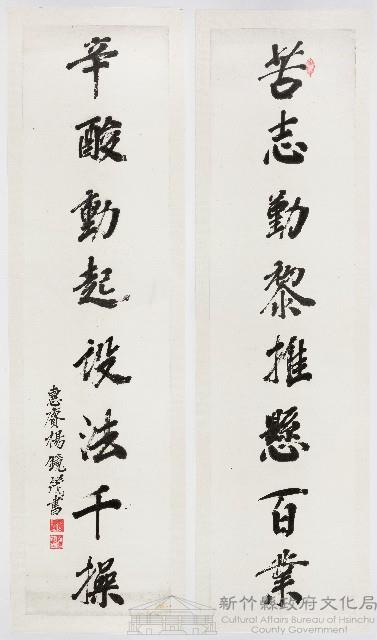 苦志勤黎推懸百業
辛酸動起設法千操
惠齋楊鏡茂書
新竹縣政府文化局
Cultural Affairs Bureau of Hsinchu
County Government